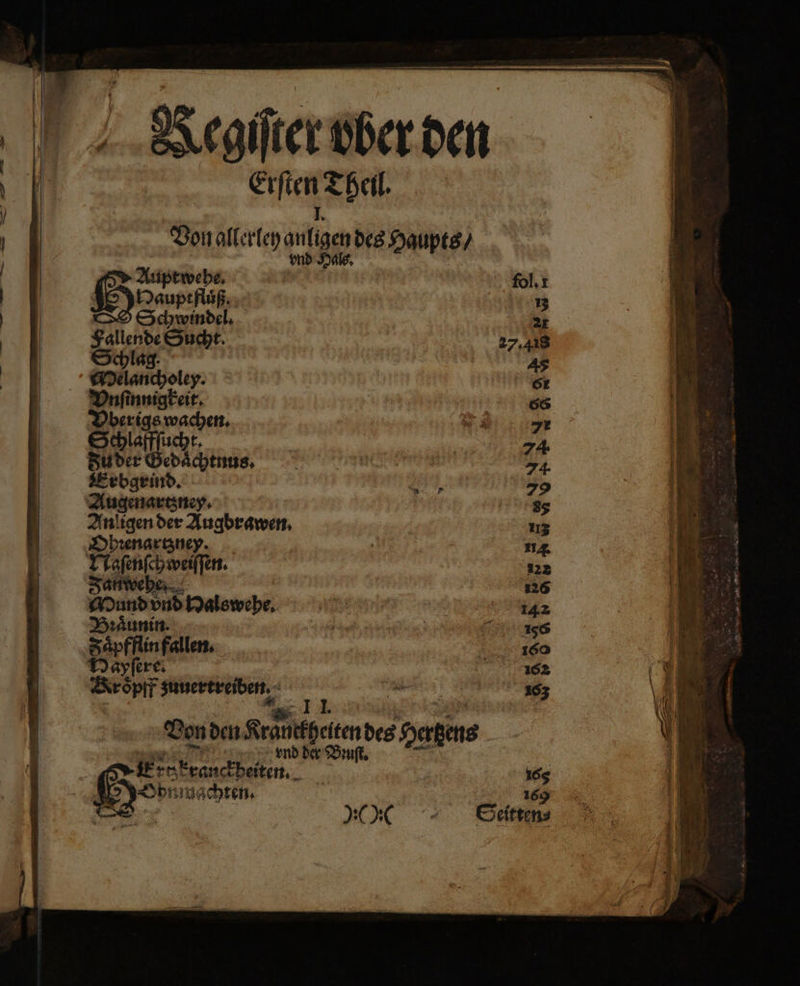 Regiſter vber den
Erſten Theil.
I.
Von allerley anligen des Haupts/
vnd Hals.
HAuptwehe. fol. 1
Hauptflüß. 13
Schwindel. 21
Fallende Sucht. 27.418
Schlag. 45
Melancholey. 61
Vnſinnigkeit. 66
Vberigs wachen. 71
Schlaffſucht. 74
Zu der Gedåchtnus. 74
Erbgrind. 79
Augenartzney. 85
Anligen der Augbrawen. 113
Ohꝛenartzney. 114
Naſenſchweiſſen. 122
Zanwehe. 126
Mund vnd Halswehe. 142
Bꝛåunin. 156
Zåpfflin fallen. 160
Hayſere. 162
Kröpff zuuertreiben. 163
II.
Von den Kranckheiten des Hertzens
vnd der Bꝛuſt.
HErtzkranckheiten. 165
Ohnmachten. 169
):( ):( Seitten⸗